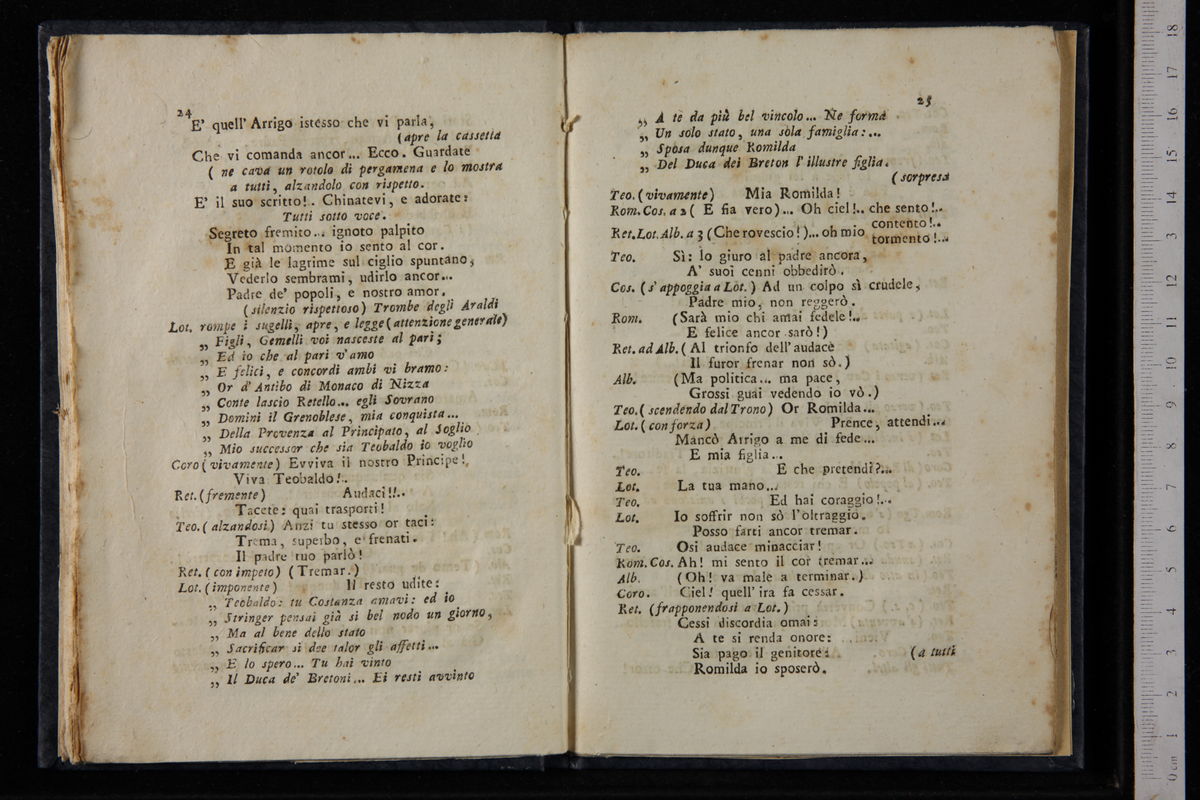 24
E' quell' Arrigo istesso che vi parla,
(apre la cassetta
Che vi comanda ancor... Ecco. Guardate
( ne cava un rotolo di pergamena e lo mostra
a tutti, alzandolo con rispetto.
E' il suo scritto!. Chinatevi, e adorate:
Tutti sotto voce.
Segreto fremito... ignoto palpito
In tal momento io sento al cor.
E già le lagrime sul ciglio spuntano,
Vederlo sembrami, udirlo ancor...
Padre de' popoli, e nostro amor.
(silenzio rispettoso) Trombe degli Araldi
Lot. rompe i sugelli, apre, e legge (attenzione generale)
„ Figli, Gemelli voi nasceste al pari;
„ Ed io che al pari v'amo
„ E felici, e concordi ambi vi bramo:
„ Or d'Antibo di Monaco di Nizza
„ Conte lascio Retello... egli Sovrano
„ Domini il Grenoblese, mia conquista...
„ Della Provenza al Principato, al Soglio
„ Mio successor che sia Teobaldo io voglio
Coro (vivamente) Evviva il nostro Principe!,
Viva Teobaldo!.
Ret. (fremente) Audaci!!..
Tacete: quai trasporti!
Teo. (alzandosi) Anzi tu stesso or taci:
Trema, superbo, e frenati.
Il padre tuo parlò!
Ret. (con impeto) (Tremar.)
Lot. (imponente) Il resto udite:
„ Teobaldo: tu Costanza amavi: ed io
„ Stringer pensai già sì bel nodo un giorno,
„ Ma al bene dello stato
„ Sacrificar si dee talor gli affetti...
„ E lo spero... Tu hai vinto
„ Il Duca de' Bretoni... Ei resti avvinto
25
„ A te da più bel vincolo... Ne forma
„ Un solo stato, una sola famiglia:...
„ Sposa dunque Romilda
„ Del Duca dei Breton l'illustre figlia.
(sorpresa
Teo. (vivamente) Mia Romilda!
Rom. Cos. a 2 ( E fia vero)... Oh ciel!.. che sento!..
Ret. Lot. Alb. a 3 (Che rovescio!)... oh mio contento!..
tormento!...
Teo. Sì: lo giuro al padre ancora,
A' suoi cenni obbedirò.
Cos. (s'appoggia a Lot.) Ad un colpo sì crudele,
Padre mio, non reggerò.
Rom. (Sarà mio chi amai fedele!..
E felice ancor sarò!)
Ret. ad Alb. (Al trionfo dell'audace
Il furor frenar non sò.)
Alb. (Ma politica... ma pace,
Grossi guai vedendo io vò.)
Teo. (scendendo dal Trono) Or Romilda...
Lot. (con forza) Prence, attendi...
Mancò Arrigo a me di fede...
E mia figlia...
Teo. E che pretendi?...
Lot. La tua mano...
Teo. Ed hai coraggio!...
Lot. Io soffrir non sò l'oltraggio.
Posso farti ancor tremar.
Teo. Osi audace minacciar!
Rom. Cos. Ah! mi sento il cor tremar...
Alb. (Oh! va male a terminar.)
Coro. Ciel! quell'ira fa cessar.
Ret. (frapponendosi a Lot.)
Cessi discordia omai:
A te si renda onore:
Sia pago il genitore: (a tutti
Romilda io sposerò.
0 cm 1 2 3 4 5 6 7 8 9 10 11 12 13 14 15 16 17 18